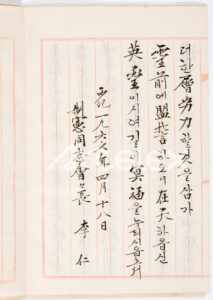 더한層努力할것을삼가
靈前에盟誓하오니在天하옵신
英靈이시여길이冥福을누리시옵소서
西紀一九六六年四月十八日
制憲同志會々長 李仁